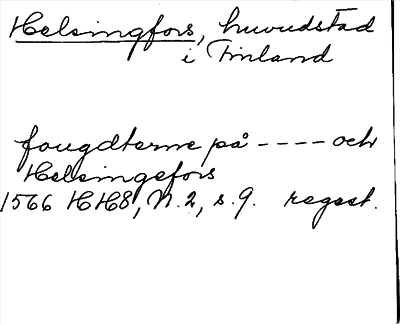 Helsingfors, huvudstad
i Finland
fougdterne på ---- och
Helsingefors
1566 HH8, N. 2, s. 9. regest.